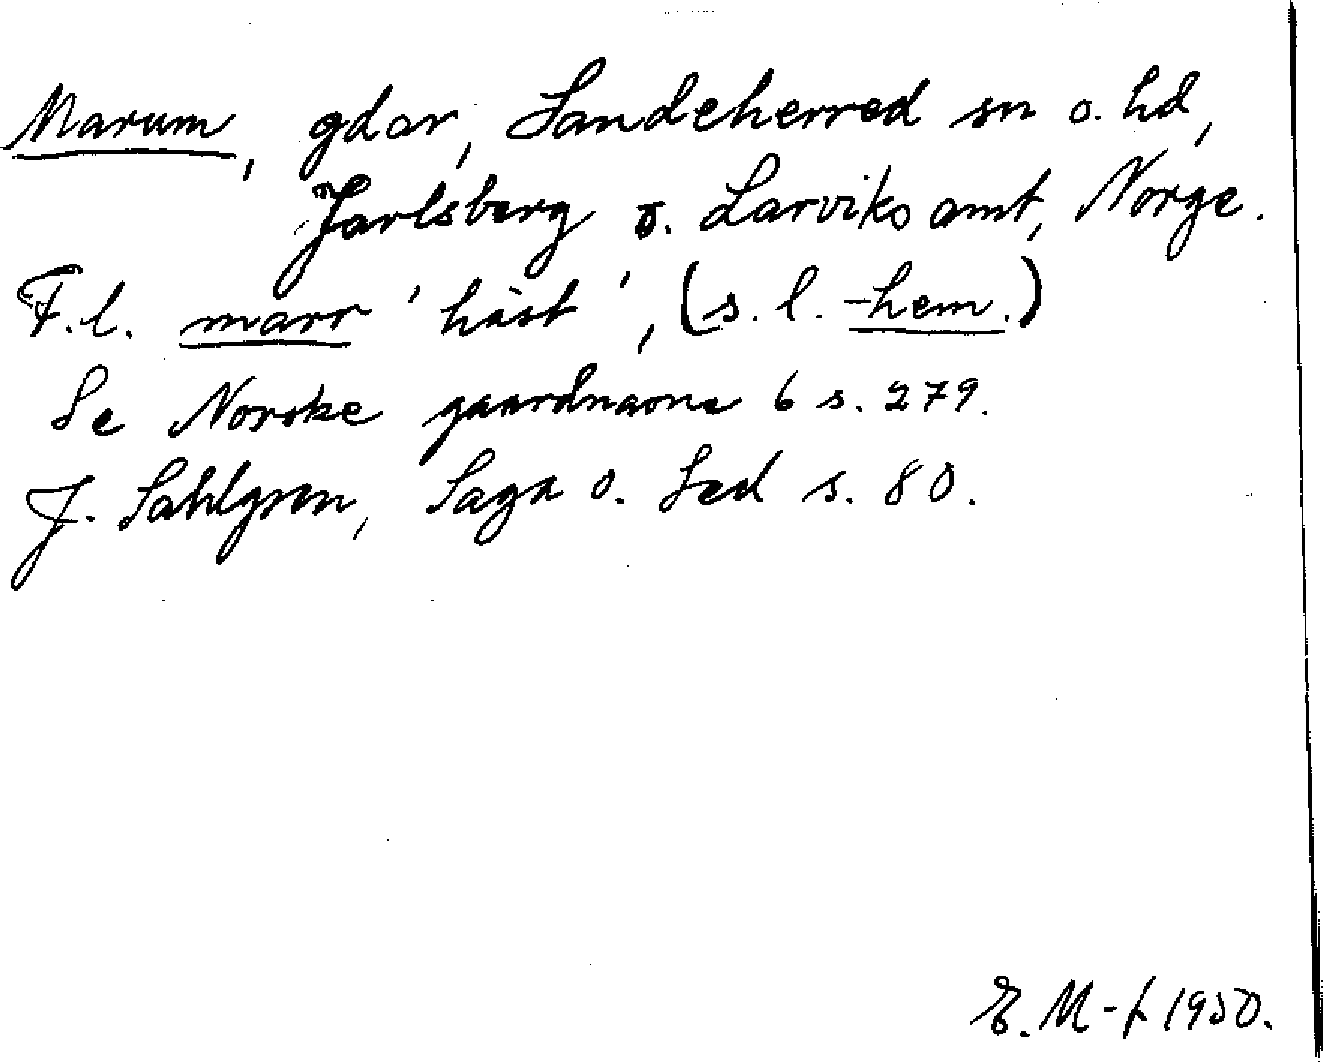 Marum, gdar, Sandeherred sn o. hd,
Jarlsberg o. Larviks amt, Norge.
F.l. marr 'häst', (s. l. -hem.)
Se Norske gaardnavne 6 s. 279.
J. Sahlgren, Saga o. Sed s. 80.
E. M-f 1950.